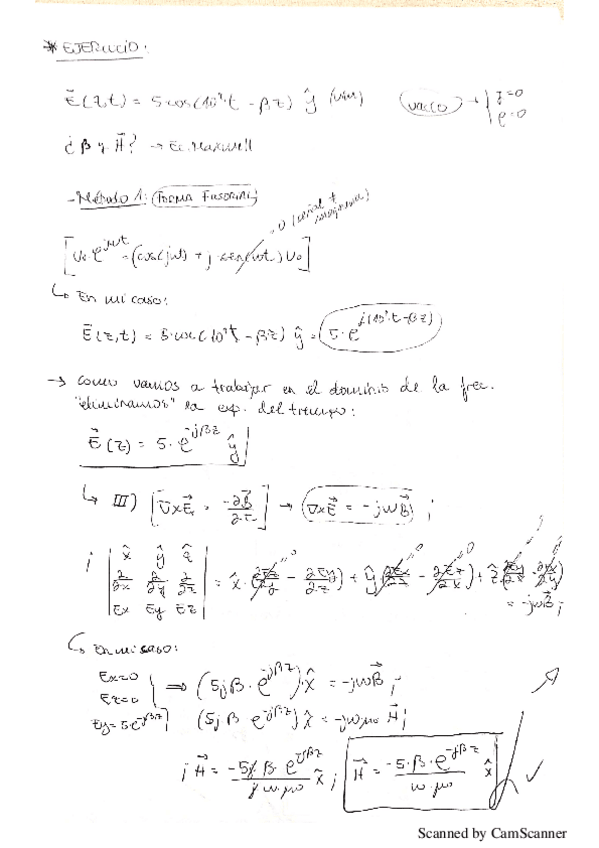 * EJERCICIO:
E⃗(z,t) = 5·cos(10⁹·t - βz) ŷ (V/m) (vacío) → { J=0
ρ=0
¿β y H⃗? → Ec. Maxwell
- Método 1: (FORMA FASORIAL)
=0 (señal +
[V₀·e^{jωt} = (cos(jω) + j·sen(ωt))V₀]
↳ En mi caso:
E⃗(z,t) = 5·cos(10⁹t - βz) ŷ = 5·e^{j(10⁹·t-βz)}
→ Como vamos a trabajar en el dominio de la frec.
"eliminamos" la exp. del tiempo:
E⃗(z) = 5·e^{-jβz} ŷ
↳ III) [∇xE⃗ = -∂B⃗/∂t] → (∇xE⃗ = -jωB⃗) ;
¡ | x̂ ŷ ẑ |
| ∂/∂x ∂/∂y ∂/∂z | = x̂·(∂Ez/∂y - ∂Ey/∂z) + ŷ(∂Ex/∂z - ∂Ez/∂x) + ẑ(∂Ey/∂x - ∂Ex/∂y)
| Ex Ey Ez | = -jωB⃗ ;
↳ En mi caso:
Ex=0
Ez=0 } ⇒ (5jβ·e^{-jβz})·x̂ = -jωB⃗ ;
Ey=5·e^{-jβz} ; (5jβ e^{-jβz}) x̂ = -jωμ₀ H⃗ ;
¡ H⃗ = -5jβ·e^{-jβz} / jω·μ₀ x̂ ; H⃗ = -5·β·e^{-jβz} / ω·μ₀ x̂ ✓
Scanned by CamScanner